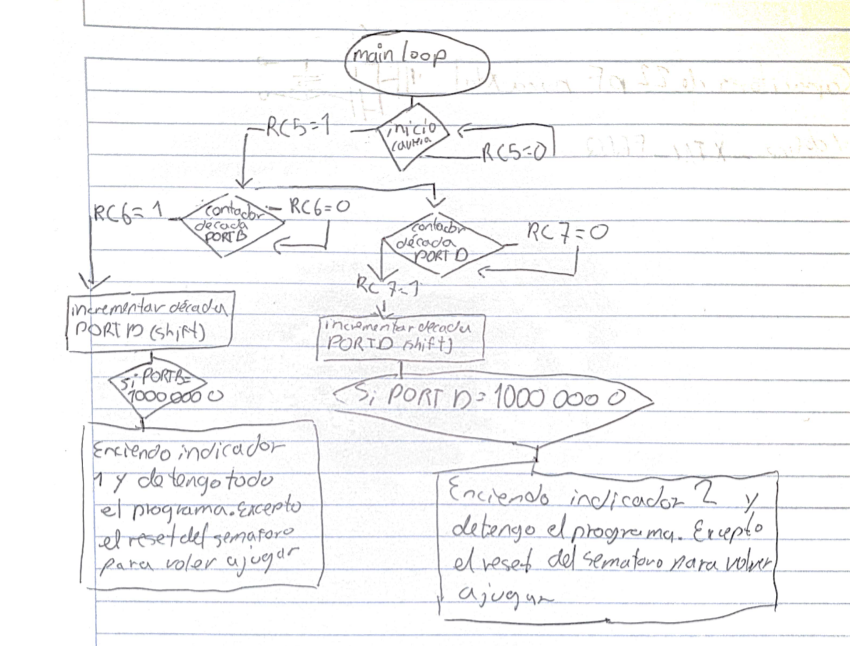 main loop
inicio
carrera
RC5=1
RC5=0
RC6=1
contador
década
PORTB
RC6=0
contador
década
PORT D
RC7=0
RC7=1
incrementar década
PORT B (shift)
incrementar decada
PORTD shift)
Si PORTB=
1000 000 0
Si PORT D = 1000 000 0
Enciendo indicador
1 y detengo todo
el programa. Excepto
el reset del semaforo
para voler a jugar
Enciendo indicador 2 y
detengo el programa. Excepto
el reset del semaforo para volver
a jugar